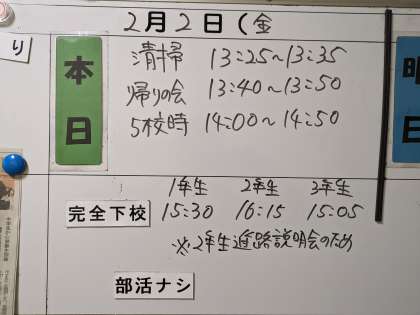 2月2日(金
り
本日
明日
清掃 13:25~13:35
帰りの会 13:40~13:50
5校時 14:00~14:50
1年生 2年生 3年生
完全下校 15:30 16:15 15:05
※2年生進路説明会のため
部活ナシ